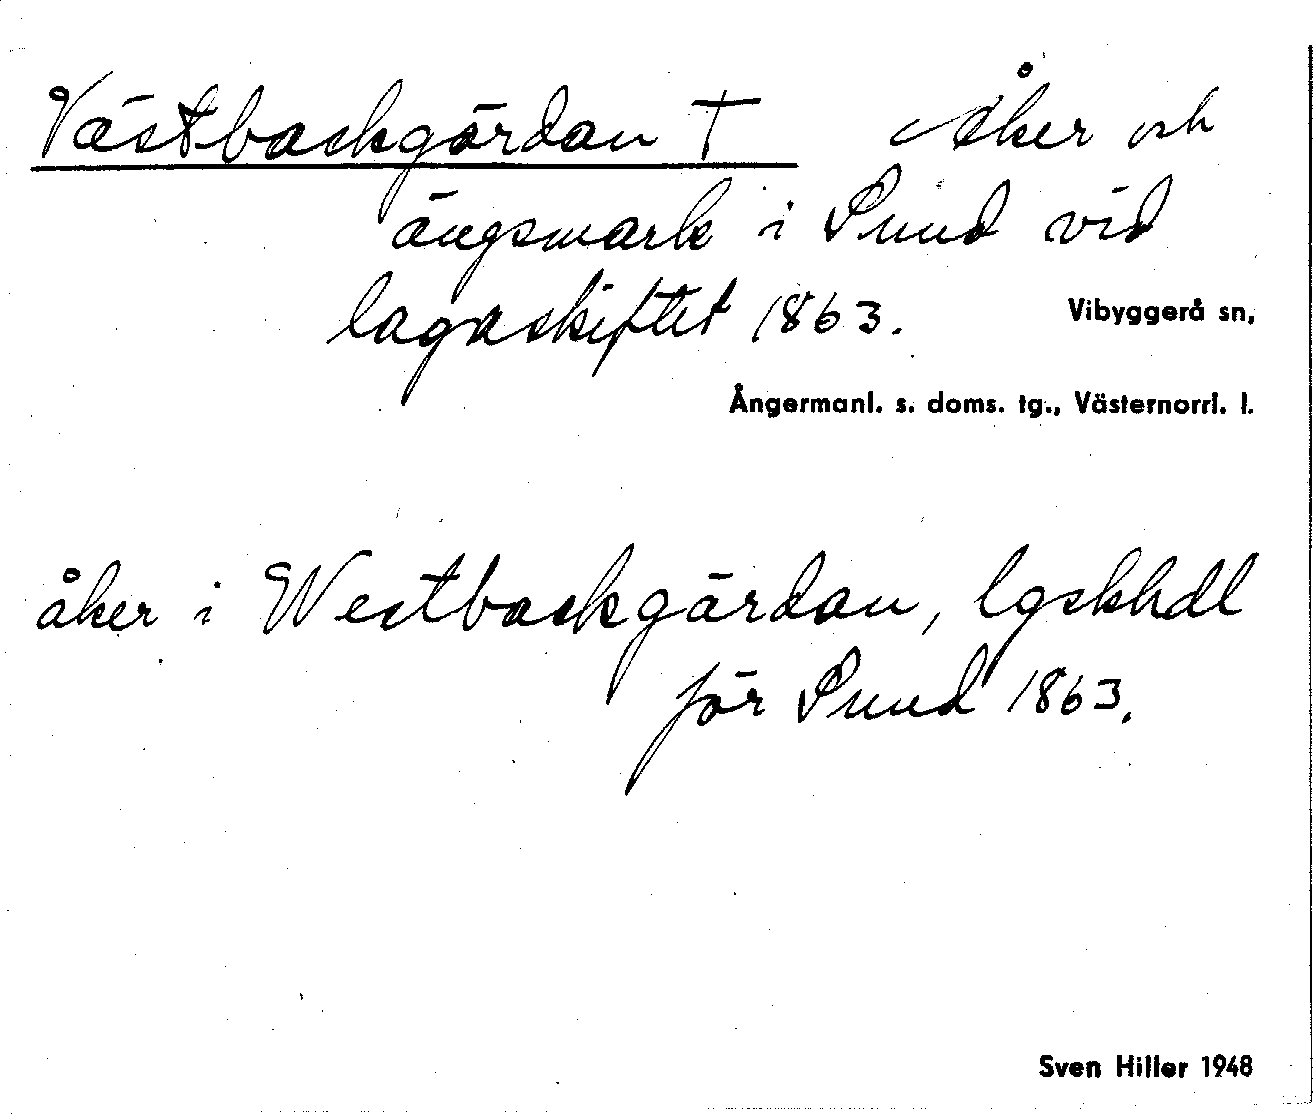 Västbackgärdan † Åker och
ängsmark i Sund vid
lagaskiftet 1863.
Vibyggerå sn,
Ångermanl. s. doms. tg., Västernorrl. l.
åker i Westbackgärdan, lgskhdl
för Sund 1863.
Sven Hiller 1948